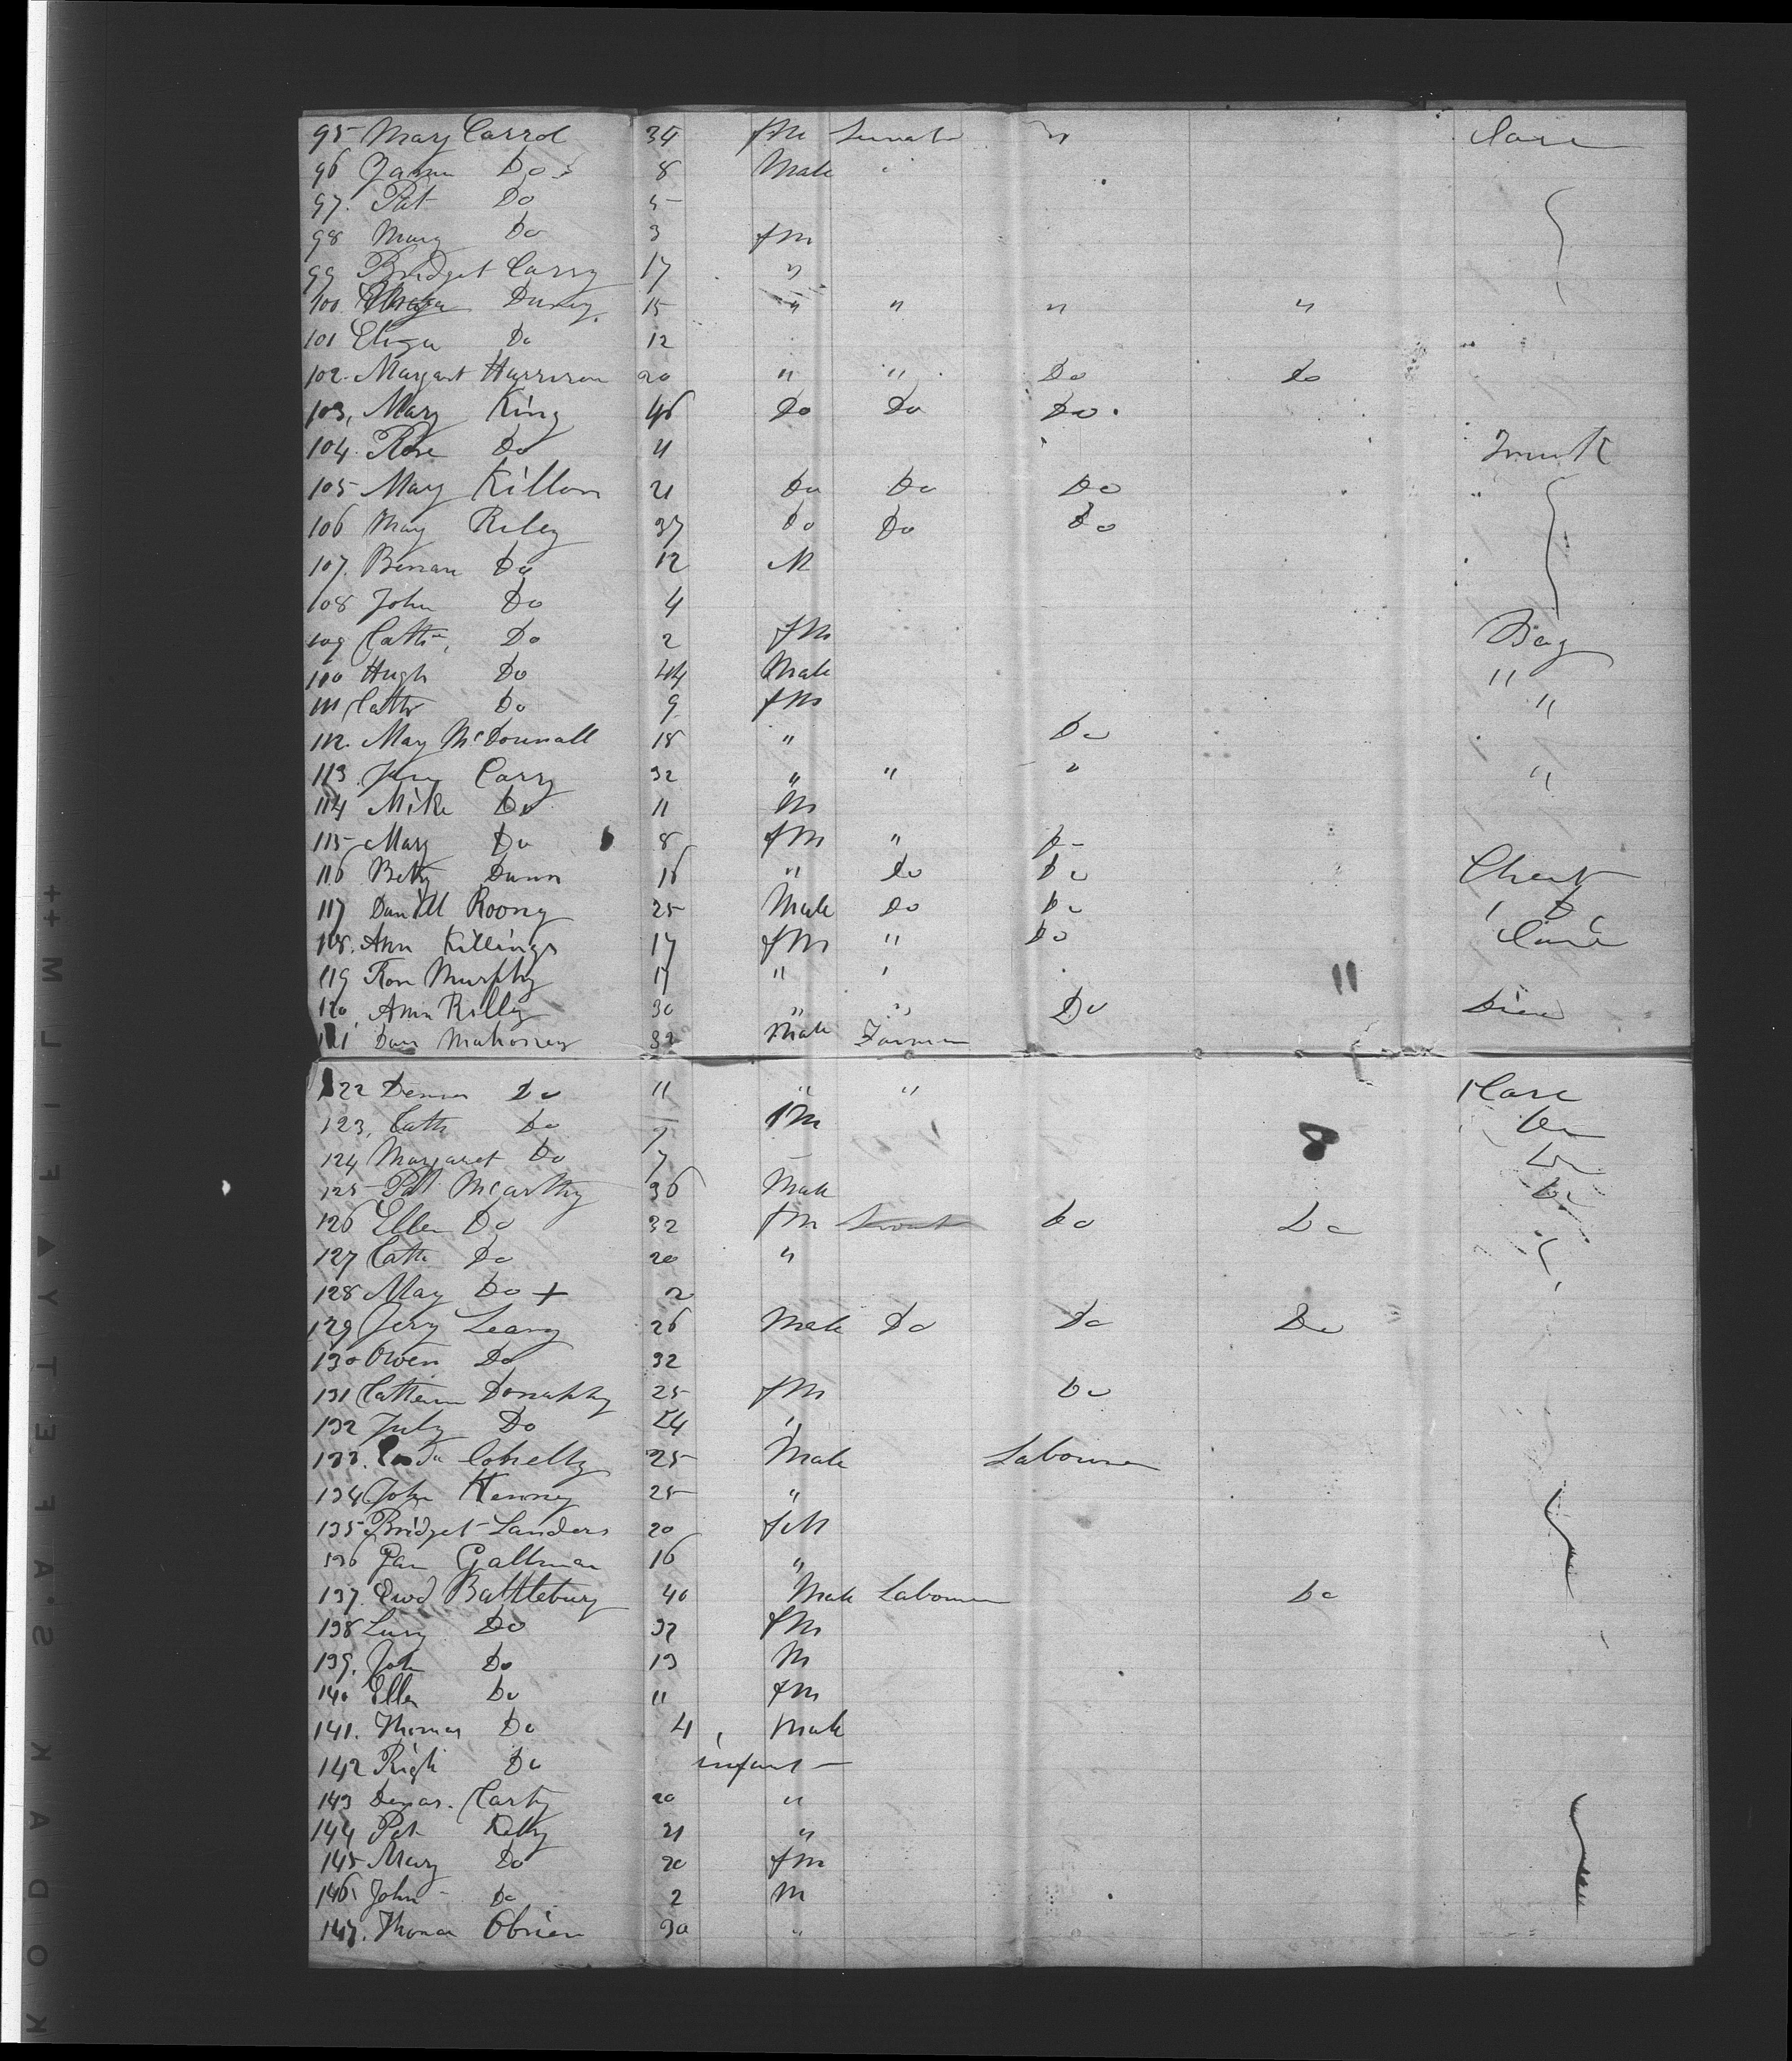 95 Mary Carrol 34 fm " Case
96 Do 8 Male "
97. Pat Do 5
98 Mary Do 3 fm
99 Bridget Carry 17 "
100. Durey. 15 " " " "
101 Eliza Do 12
102. Margart Harrison 20 " " Do Do
103, Mary King 46 Do Do Do.
104. Rose Do Trunk
105 Mary Killon 21 Do Do Do "
106 Mary Riley 37 Do Do Do
107. Do 12 M
108 John Do 4
109 Cath Do 2 fm Bag
110 Hugh Do 44 Male "
111 Cath Do 9 fm "
112. May McDonnall 18 " Do
113 Carry 32 " " " "
114 Mike Do 11 M
115 Mary Do 8 fm "
116 Betty Dunn 16 " Do Do Chest
117 Roony 25 Male Do Do
118. Ann Killings 17 fm " Do Case
119 Rose Murphy 17 " "
120, Ann Rilly 30 " " Do
121 Dan Mahoney 32 Male Farmer 11
122 Dennis Do 11 " " Case
123, Cath Do 9 fm 8 Do
124 Margaret Do 7 Do
125 Pat McCarthy 36 Male Do
126 Ellen Do 32 fm Do Do
127 Cath Do 20 "
128 May Do + 2
129 Jery Leary 26 Male Do Do Do
130 Owen Do 32
131 Donahhy 25 fm Do
132 July Do 24 "
133. 25 Male Labourer
134 John Kenney 25 "
135 Bridget Landers 20 fM
136 16 "
137. Edwd Battlebury 40 Male Labourer Do
138 Lucy Do 32 fm
139, John Do 13 M
140 Ellen Do 11 fm
141. Thomas Do 4 Male
142 Do infant
143 Carty 20 "
144 Pat Kelly 21 "
145 Mary Do 20 fm
146 John Do 2 M
147. Thomas Obrien 30 "
KODAK SAFETY FILM ++